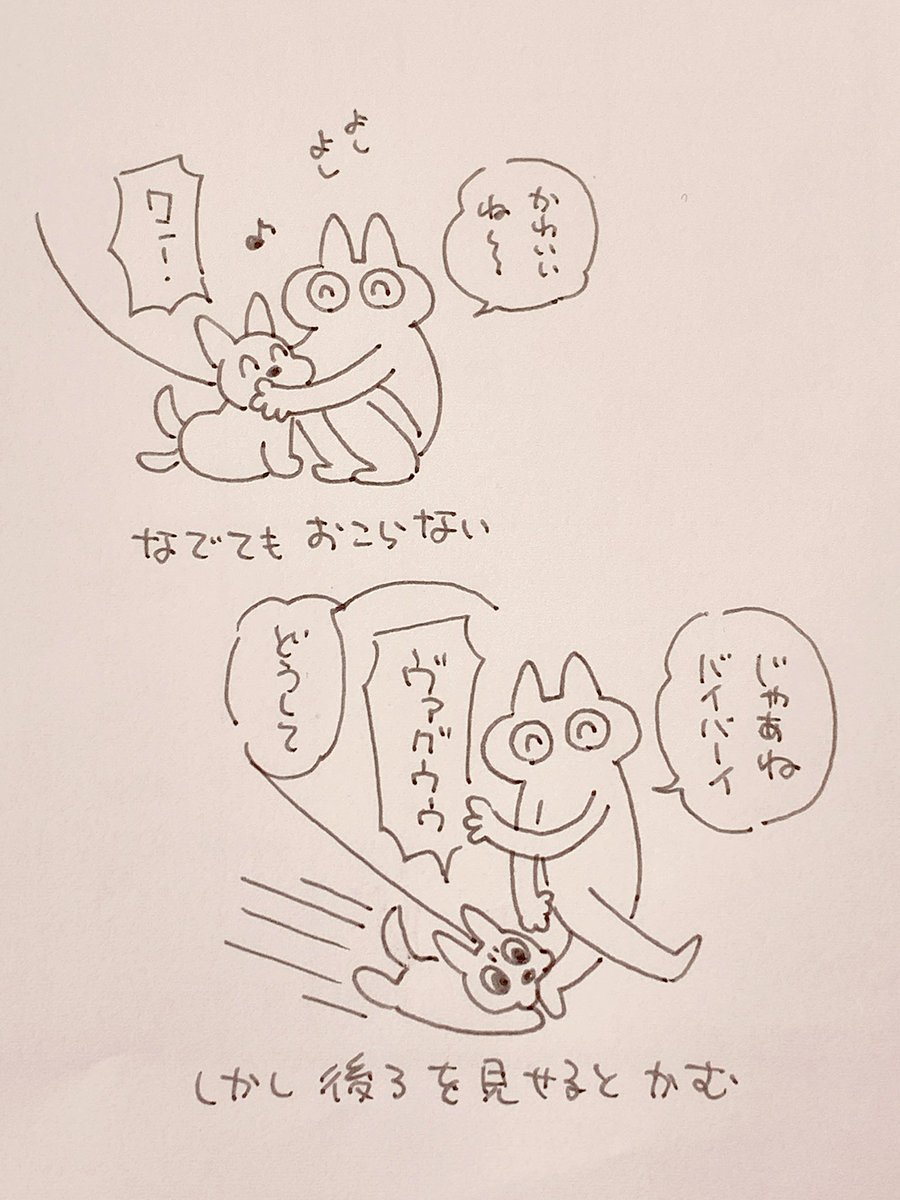 よし
よし
かわいい
ね〜
ワー!
なでても おこらない
じゃあね
バイバーイ
ヴァグゥゥ
どうして
しかし 後ろを見せると かむ